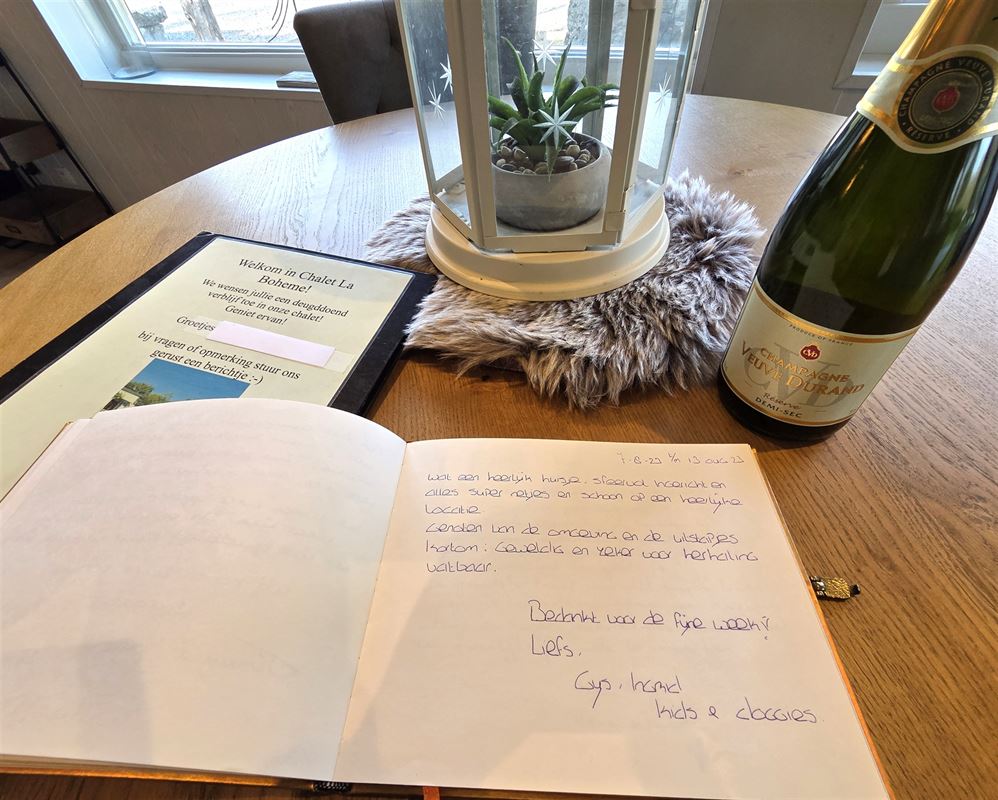 Welkom in Chalet La
Boheme!
We wensen jullie een deugddoend
verblijf toe in onze chalet!
Geniet ervan!
Groetjes
bij vragen of opmerking stuur ons
gerust een berichtje :-)
CHAMPAGNE VEUVE
RESERVE
PRODUCE OF FRANCE
CHAMPAGNE
VEUVE DURAND
Réserve
DEMI-SEC
7-8-23 t/m 13 aug 23
wat een heerlijk huisje, sfeervol ingericht en
alles super netjes en schoon op een heerlijke
locatie.
Genoten van de omgeving en de uitstapjes
Kortom: Geweldig en zeker voor herhaling
vatbaar.
Bedankt voor de fijne week!
Liefs,
Gys, Ingrid
kids & doggies.